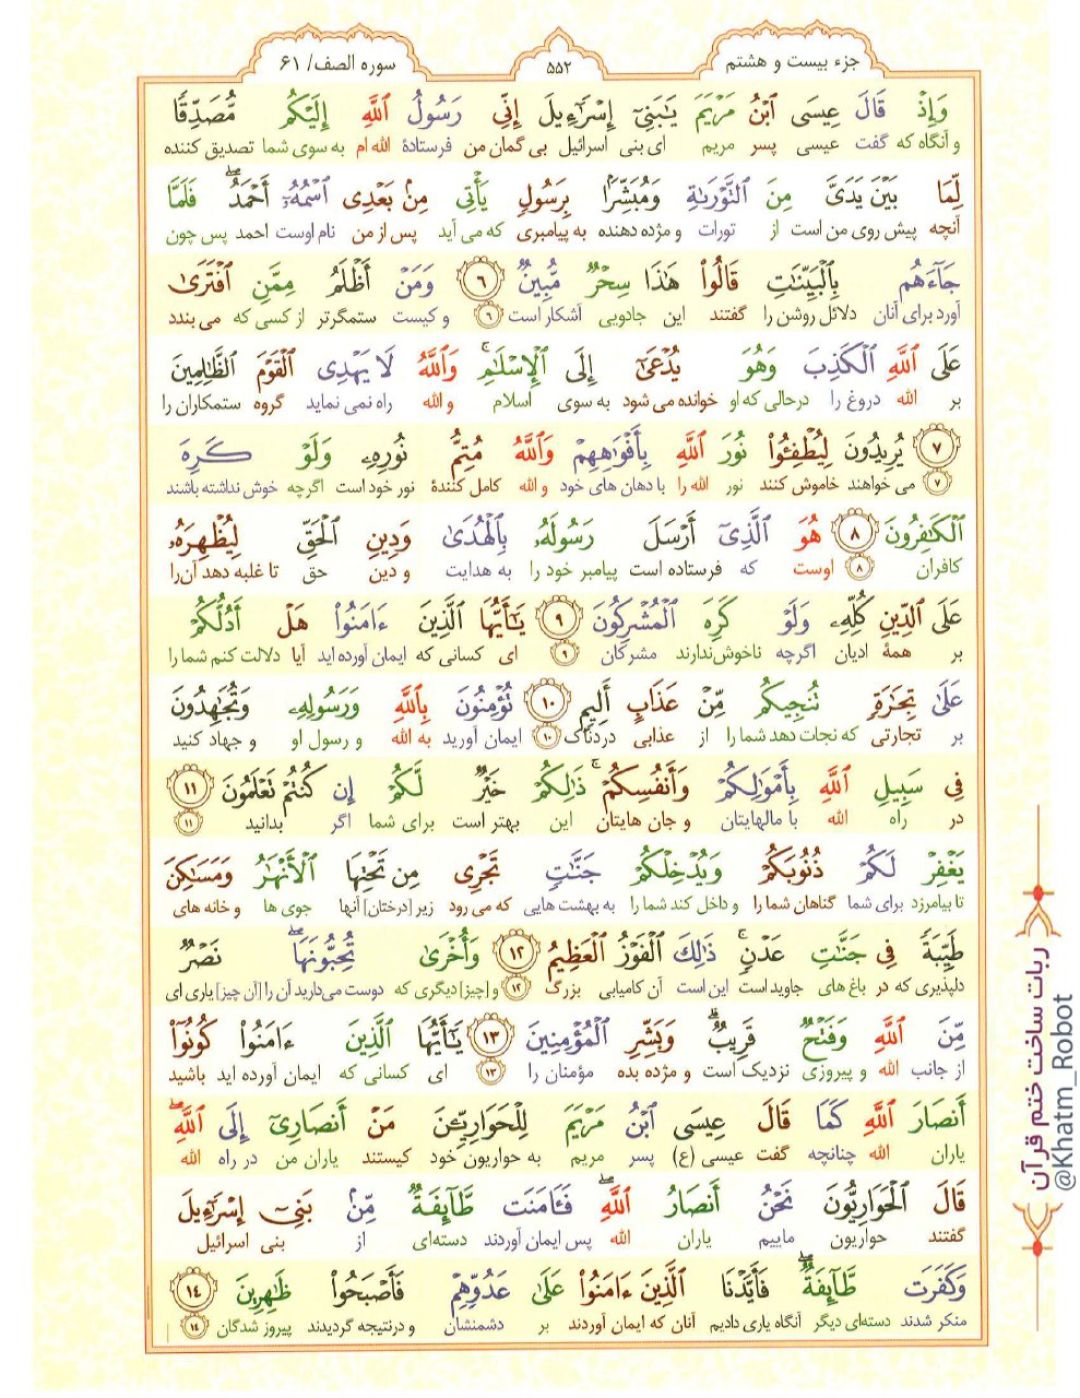 جزء بیست و هشتم
۵۵۲
سوره الصف/ ۶۱
وَإِذۡ قَالَ عِيسَى ٱبۡنُ مَرۡيَمَ يَٰبَنِيٓ إِسۡرَٰٓءِيلَ إِنِّي رَسُولُ ٱللَّهِ إِلَيۡكُم مُّصَدِّقٗا
و آنگاه که گفت عیسی پسر مریم ای بنی اسرائیل بی گمان من فرستادهٔ الله ام به سوی شما تصدیق کننده
لِّمَا بَيۡنَ يَدَيَّ مِنَ ٱلتَّوۡرَىٰةِ وَمُبَشِّرَۢا بِرَسُولٖ يَأۡتِي مِنۢ بَعۡدِي ٱسۡمُهُۥٓ أَحۡمَدُۖ فَلَمَّا
آنچه پیش روی من است از تورات و مژده دهنده به پیامبری که می آید پس از من نام اوست احمد پس چون
جَآءَهُم بِٱلۡبَيِّنَٰتِ قَالُواْ هَٰذَا سِحۡرٞ مُّبِينٞ ۶ وَمَنۡ أَظۡلَمُ مِمَّنِ ٱفۡتَرَىٰ
آورد برای آنان دلائل روشن را گفتند این جادویی آشکار است ۶ و کیست ستمگرتر از کسی که می بندد
عَلَى ٱللَّهِ ٱلۡكَذِبَ وَهُوَ يُدۡعَىٰٓ إِلَى ٱلۡإِسۡلَٰمِۚ وَٱللَّهُ لَا يَهۡدِي ٱلۡقَوۡمَ ٱلظَّٰلِمِينَ
بر الله دروغ را درحالی که او خوانده می شود به سوی اسلام و الله راه نمی نماید گروه ستمکاران را
۷ يُرِيدُونَ لِيُطۡفِـُٔواْ نُورَ ٱللَّهِ بِأَفۡوَٰهِهِمۡ وَٱللَّهُ مُتِمُّ نُورِهِۦ وَلَوۡ كَرِهَ
۷ می خواهند خاموش کنند نور الله را با دهان های خود و الله کامل کنندهٔ نور خود است اگرچه خوش نداشته باشند
ٱلۡكَٰفِرُونَ ۸ هُوَ ٱلَّذِيٓ أَرۡسَلَ رَسُولَهُۥ بِٱلۡهُدَىٰ وَدِينِ ٱلۡحَقِّ لِيُظۡهِرَهُۥ
کافران ۸ اوست که فرستاده است پیامبر خود را به هدایت و دین حق تا غلبه دهد آن‌را
عَلَى ٱلدِّينِ كُلِّهِۦ وَلَوۡ كَرِهَ ٱلۡمُشۡرِكُونَ ۹ يَٰٓأَيُّهَا ٱلَّذِينَ ءَامَنُواْ هَلۡ أَدُلُّكُمۡ
بر همهٔ ادیان اگرچه ناخوش‌ندارند مشرکان ۹ ای کسانی که ایمان آورده اید آیا دلالت کنم شما را
عَلَىٰ تِجَٰرَةٖ تُنجِيكُم مِّنۡ عَذَابٍ أَلِيمٖ ۱۰ تُؤۡمِنُونَ بِٱللَّهِ وَرَسُولِهِۦ وَتُجَٰهِدُونَ
بر تجارتی که نجات دهد شما را از عذابی دردناک ۱۰ ایمان آورید به الله و رسول او و جهاد کنید
فِي سَبِيلِ ٱللَّهِ بِأَمۡوَٰلِكُمۡ وَأَنفُسِكُمۡۚ ذَٰلِكُمۡ خَيۡرٞ لَّكُمۡ إِن كُنتُمۡ تَعۡلَمُونَ ۱۱
در راه الله با مالهایتان و جان هایتان این بهتر است برای شما اگر بدانید ۱۱
يَغۡفِرۡ لَكُمۡ ذُنُوبَكُمۡ وَيُدۡخِلۡكُمۡ جَنَّٰتٖ تَجۡرِي مِن تَحۡتِهَا ٱلۡأَنۡهَٰرُ وَمَسَٰكِنَ
تا بیامرزد برای شما گناهان شما را و داخل کند شما را به بهشت هایی که می رود زیر [درختان] آنها جوی ها و خانه های
طَيِّبَةٗ فِي جَنَّٰتِ عَدۡنٖۚ ذَٰلِكَ ٱلۡفَوۡزُ ٱلۡعَظِيمُ ۱۲ وَأُخۡرَىٰ تُحِبُّونَهَاۖ نَصۡرٞ
دلپذیری که در باغ های جاوید است این است آن کامیابی بزرگ ۱۲ و [چیز] دیگری که دوست می‌دارید آن را [آن چیز] یاری ای
مِّنَ ٱللَّهِ وَفَتۡحٞ قَرِيبٞۗ وَبَشِّرِ ٱلۡمُؤۡمِنِينَ ۱۳ يَٰٓأَيُّهَا ٱلَّذِينَ ءَامَنُواْ كُونُوٓاْ
از جانب الله و پیروزی نزدیک است و مژده بده مؤمنان را ۱۳ ای کسانی که ایمان آورده اید باشید
أَنصَارَ ٱللَّهِ كَمَا قَالَ عِيسَى ٱبۡنُ مَرۡيَمَ لِلۡحَوَارِيِّـۧنَ مَنۡ أَنصَارِيٓ إِلَى ٱللَّهِۖ
یاران الله چنانچه گفت عیسی (ع) پسر مریم به حواریون خود کیستند یاران من در راه الله
قَالَ ٱلۡحَوَارِيُّونَ نَحۡنُ أَنصَارُ ٱللَّهِۖ فَـَٔامَنَت طَّآئِفَةٞ مِّنۢ بَنِيٓ إِسۡرَٰٓءِيلَ
گفتند حواریون ماییم یاران الله پس ایمان آوردند دسته‌ای از بنی اسرائیل
وَكَفَرَت طَّآئِفَةٞۖ فَأَيَّدۡنَا ٱلَّذِينَ ءَامَنُواْ عَلَىٰ عَدُوِّهِمۡ فَأَصۡبَحُواْ ظَٰهِرِينَ ۱۴
منکر شدند دسته‌ای دیگر آنگاه یاری دادیم آنان که ایمان آوردند بر دشمنشان و درنتیجه گردیدند پیروز شدگان ۱۴
ربات ساخت ختم قرآن
@Khatm_Robot